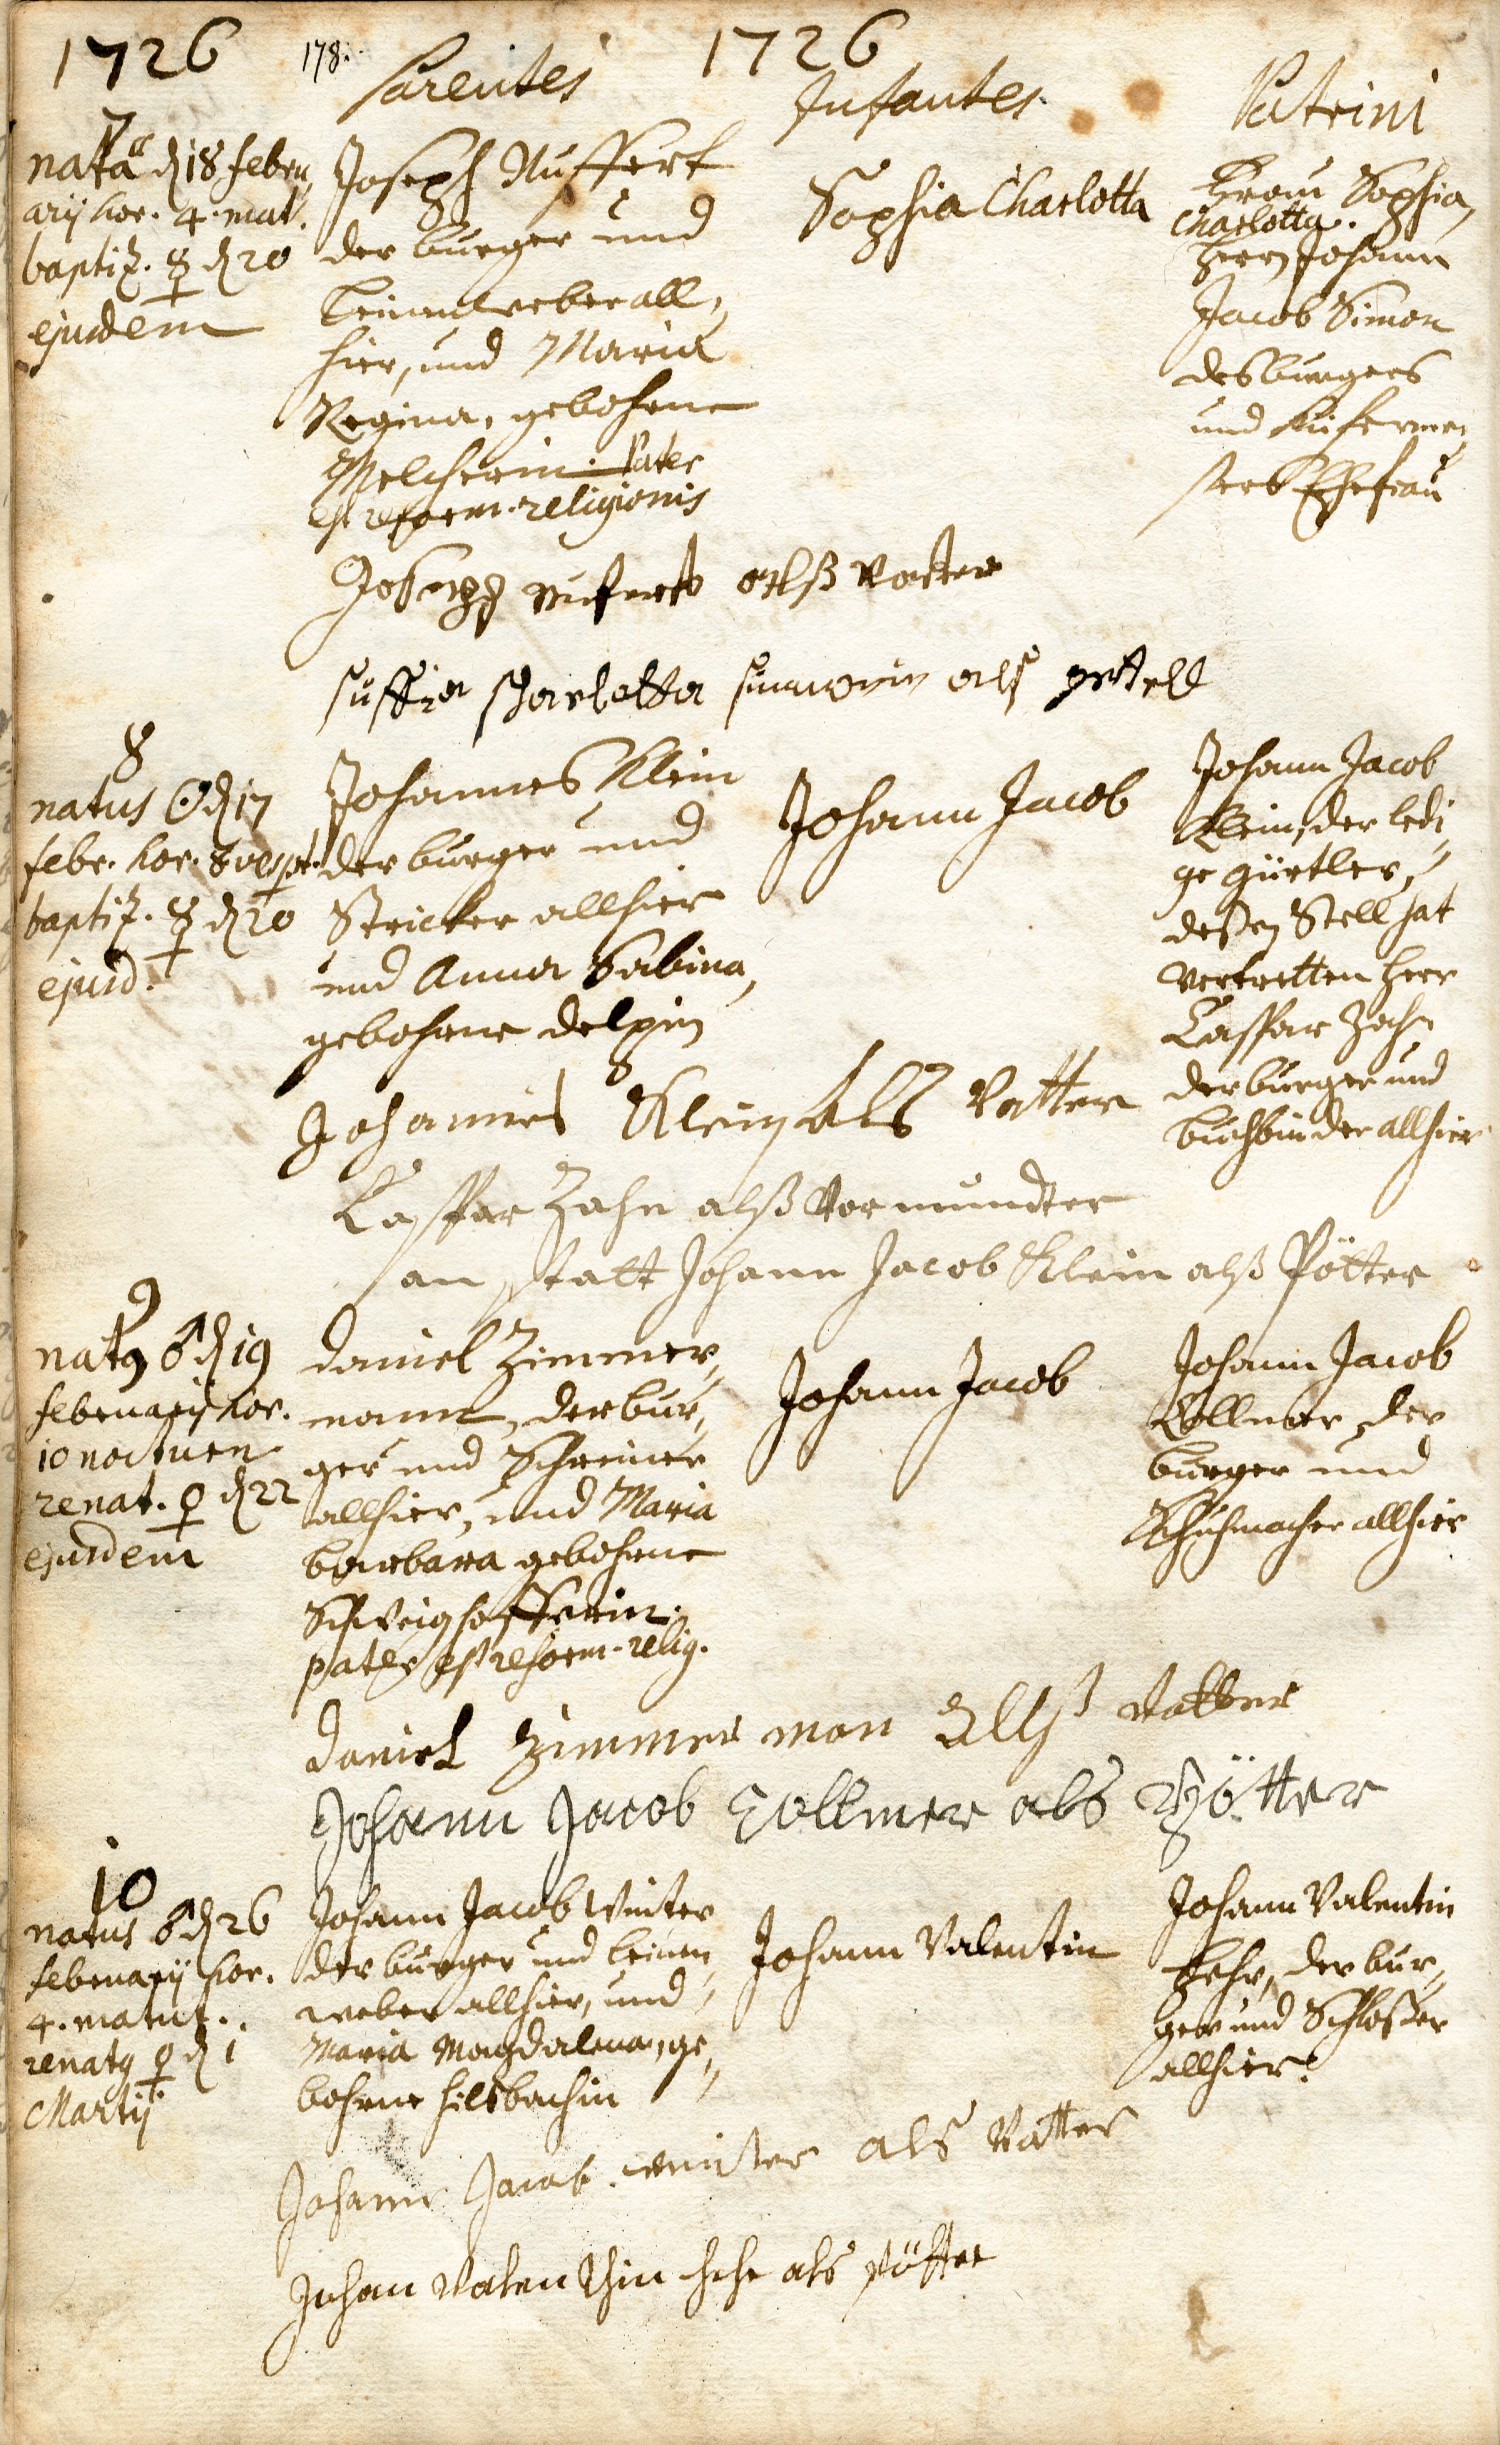 1726 178. 1726
Parentes Infantes. Patrini
7
nata d 18 febru,
arÿ hor. 4. mat.
baptiz. ☿ d 20
ejusdem
Joseph Nuffert
der burger und
Leinweber all,
hier, und Maria
Regina, gebohrne
Melcherin. Pater
est reform. religionis
Sophia Charlotta
Frau Sophia
Charlotta.
Herrn Johann
Jacob Simon
des burgers
und Küfermei,
sters Ehefrau
Joseph nufert alß vatter
suffia scharlotta simonin als gettell
8
natus ☉ d 17
febr. hor. 8 vespt.
baptiz. ☿ d 20
ejusd.
Johannes Klein
der burger und
Stricker allhier
und Anna Sabina,
gebohrne delpin
Johann Jacob
Johann Jacob
Klein, der ledi,
ge gürtler,
deßen Stell hat
Vertretten Herr
Caspar Zahn
der burger und
buchbinder allhier
Johannes Klein als Vatter
Caspar Zahn alß Vormundter
an statt Johann Jacob Klein alß Pötter
9
natꝯ ♂ d 19
februarÿ hor.
10 nocturn
renat. ♀ d 22
ejusdem
Daniel Zimmer,
mann, der bur,
ger und Schreiner
allhier, und Maria
barbara gebohrne
Schweighofferin.
pater est reform. relig.
Johann Jacob
Johann Jacob
Collmer, der
burger und
Schuhmacher allhier
Daniel Zimmer man Allß vatter
Johann Jacob Collmer als Pötter
10
natus ♂ d 26
februarÿ hor.
4. matut.
renatꝯ ♀ d 1
Martÿ
Johann Jacob Winter
der burger und Leinen,
weber allhier, und
Maria Magdalena, ge,
bohrne hilsbachin
Johann Valentin
Johann Valentin
Hehr, der bur,
ger und Schloßer
allhier.
Johann Jacob winter als Vatter
Johan Valenthin hehr als pötter